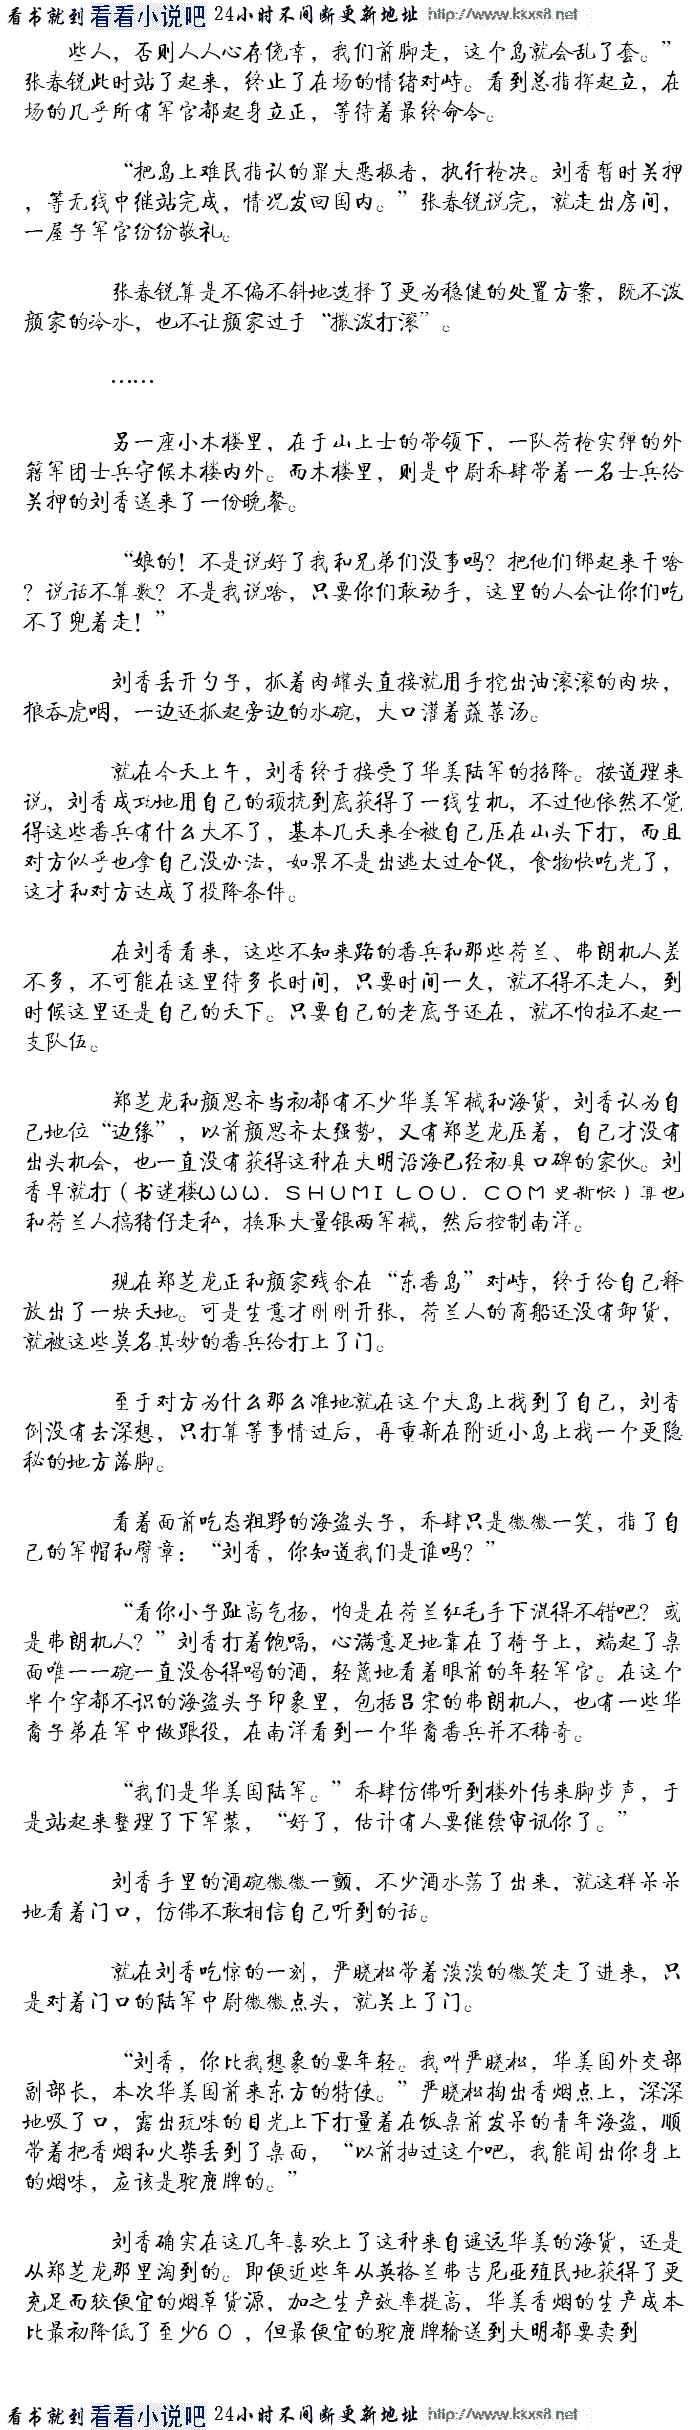 看书就到 看看小说吧 24小时不间断更新地址 http://www.kkxs8.net
些人，否则人人心存侥幸，我们前脚走，这个岛就会乱了套。”
张春锐此时站了起来，终止了在场的情绪对峙。看到总指挥起立，在
场的几乎所有军官都起身立正，等待着最终命令。
“把岛上难民指认的罪大恶极者，执行枪决。刘香暂时关押
，等无线中继站完成，情况发回国内。”张春锐说完，就走出房间，
一屋子军官纷纷敬礼。
张春锐算是不偏不斜地选择了更为稳健的处置方案，既不泼
颜家的冷水，也不让颜家过于“撒泼打滚”。
……
另一座小木楼里，在于山上士的带领下，一队荷枪实弹的外
籍军团士兵守候木楼内外。而木楼里，则是中尉乔肆带着一名士兵给
关押的刘香送来了一份晚餐。
“娘的！不是说好了我和兄弟们没事吗？把他们绑起来干啥
？说话不算数？不是我说啥，只要你们敢动手，这里的人会让你们吃
不了兜着走！”
刘香丢开勺子，抓着肉罐头直接就用手挖出油滚滚的肉块，
狼吞虎咽，一边还抓起旁边的水碗，大口灌着蔬菜汤。
就在今天上午，刘香终于接受了华美陆军的招降。按道理来
说，刘香成功地用自己的顽抗到底获得了一线生机，不过他依然不觉
得这些番兵有什么大不了，基本几天来全被自己压在山头下打，而且
对方似乎也拿自己没办法，如果不是出逃太过仓促，食物快吃光了，
这才和对方达成了投降条件。
在刘香看来，这些不知来路的番兵和那些荷兰、弗朗机人差
不多，不可能在这里待多长时间，只要时间一久，就不得不走人，到
时候这里还是自己的天下。只要自己的老底子还在，就不怕拉不起一
支队伍。
郑芝龙和颜思齐当初都有不少华美军械和海货，刘香认为自
己地位“边缘”，以前颜思齐太强势，又有郑芝龙压着，自己才没有
出头机会，也一直没有获得这种在大明沿海已经初具口碑的家伙。刘
香早就打（书迷楼ＷＷＷ．ＳＨＵＭＩＬＯＵ．ＣＯＭ更新快）算也
和荷兰人搞猪仔走私，换取大量银两军械，然后控制南洋。
现在郑芝龙正和颜家残余在“东番岛”对峙，终于给自己释
放出了一块天地。可是生意才刚刚开张，荷兰人的商船还没有卸货，
就被这些莫名其妙的番兵给打上了门。
至于对方为什么那么准地就在这个大岛上找到了自己，刘香
倒没有去深想，只打算等事情过后，再重新在附近小岛上找一个更隐
秘的地方落脚。
看着面前吃态粗野的海盗头子，乔肆只是微微一笑，指了自
己的军帽和臂章：“刘香，你知道我们是谁吗？”
“看你小子趾高气扬，怕是在荷兰红毛手下混得不错吧？或
是弗朗机人？”刘香打着饱嗝，心满意足地靠在了椅子上，端起了桌
面唯一一碗一直没舍得喝的酒，轻蔑地看着眼前的年轻军官。在这个
半个字都不识的海盗头子印象里，包括吕宋的弗朗机人，也有一些华
裔子弟在军中做跟役，在南洋看到一个华裔番兵并不稀奇。
“我们是华美国陆军。”乔肆仿佛听到楼外传来脚步声，于
是站起来整理了下军装，“好了，估计有人要继续审讯你了。”
刘香手里的酒碗微微一颤，不少酒水荡了出来，就这样呆呆
地看着门口，仿佛不敢相信自己听到的话。
就在刘香吃惊的一刻，严晓松带着淡淡的微笑走了进来，只
是对着门口的陆军中尉微微点头，就关上了门。
“刘香，你比我想象的要年轻。我叫严晓松，华美国外交部
副部长，本次华美国前来东方的特使。”严晓松掏出香烟点上，深深
地吸了口，露出玩味的目光上下打量着在饭桌前发呆的青年海盗，顺
带着把香烟和火柴丢到了桌面，“以前抽过这个吧，我能闻出你身上
的烟味，应该是驼鹿牌的。”
刘香确实在这几年喜欢上了这种来自遥远华美的海货，还是
从郑芝龙那里淘到的。即便近些年从英格兰弗吉尼亚殖民地获得了更
充足而较便宜的烟草货源，加之生产效率提高，华美香烟的生产成本
比最初降低了至少６０，但最便宜的驼鹿牌输送到大明都要卖到
看书就到 看看小说吧 24小时不间断更新地址 http://www.kkxs8.net